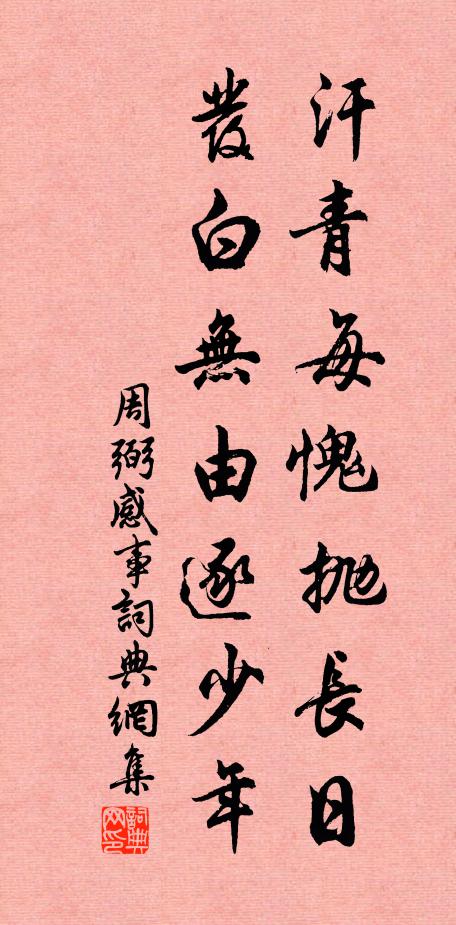 汗青每愧拋長日
發白無由逐少年
周弼感事詞典網集
詞典网印